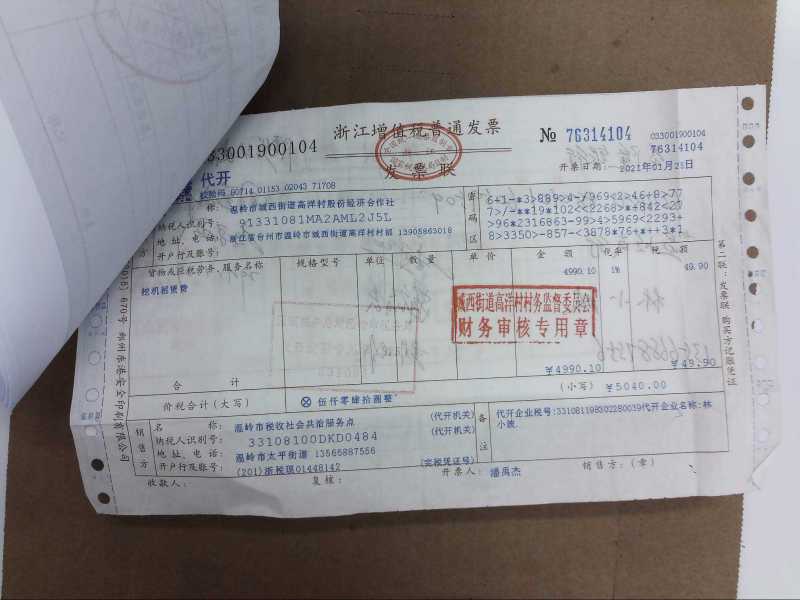 浙江增值税普通发票
发票联
033001900104
№ 76314104
033001900104
76314104
代开
校验码 60714 01153 02043 71708
开票日期: 2021年01月25日
温岭市城西街道高洋村股份经济合作社
纳税人识别号: 91331081MA2AML2J5L
地址、电话: 浙江省台州市温岭市城西街道高洋村村部 13905863018
开户行及账号:
密码区
6+1-*3>889>4-/969<2>46+8>77
7>/-**19*102<<2268>*+842<27
>96*2316863-99>4>5969<2293+
8>3350>-857-<3878*76+*++3*1
货物或应税劳务、服务名称 规格型号 单位 数量 单价 金额 税率 税额
挖机租赁费 4990.10 1% 49.90
城西街道高洋村村务监督委员会
财务审核专用章
合计 ¥4990.10 ¥49.90
价税合计(大写) ⊗ 伍仟零肆拾圆整 (小写) ¥5040.00
销售方
名称: 温岭市税收社会共治服务点 (代开机关)
纳税人识别号: 33108100DKD0484 (代开机关)
地址、电话: 温岭市太平街道 13565887556
开户行及账号: (201)浙税现01448142 (完税凭证号)
备注
代开企业税号:331081198302280039代开企业名称:林
小波
收款人:
复核:
开票人: 潘禹杰
销售方:(章)
第二联:发票联 购买方记账凭证